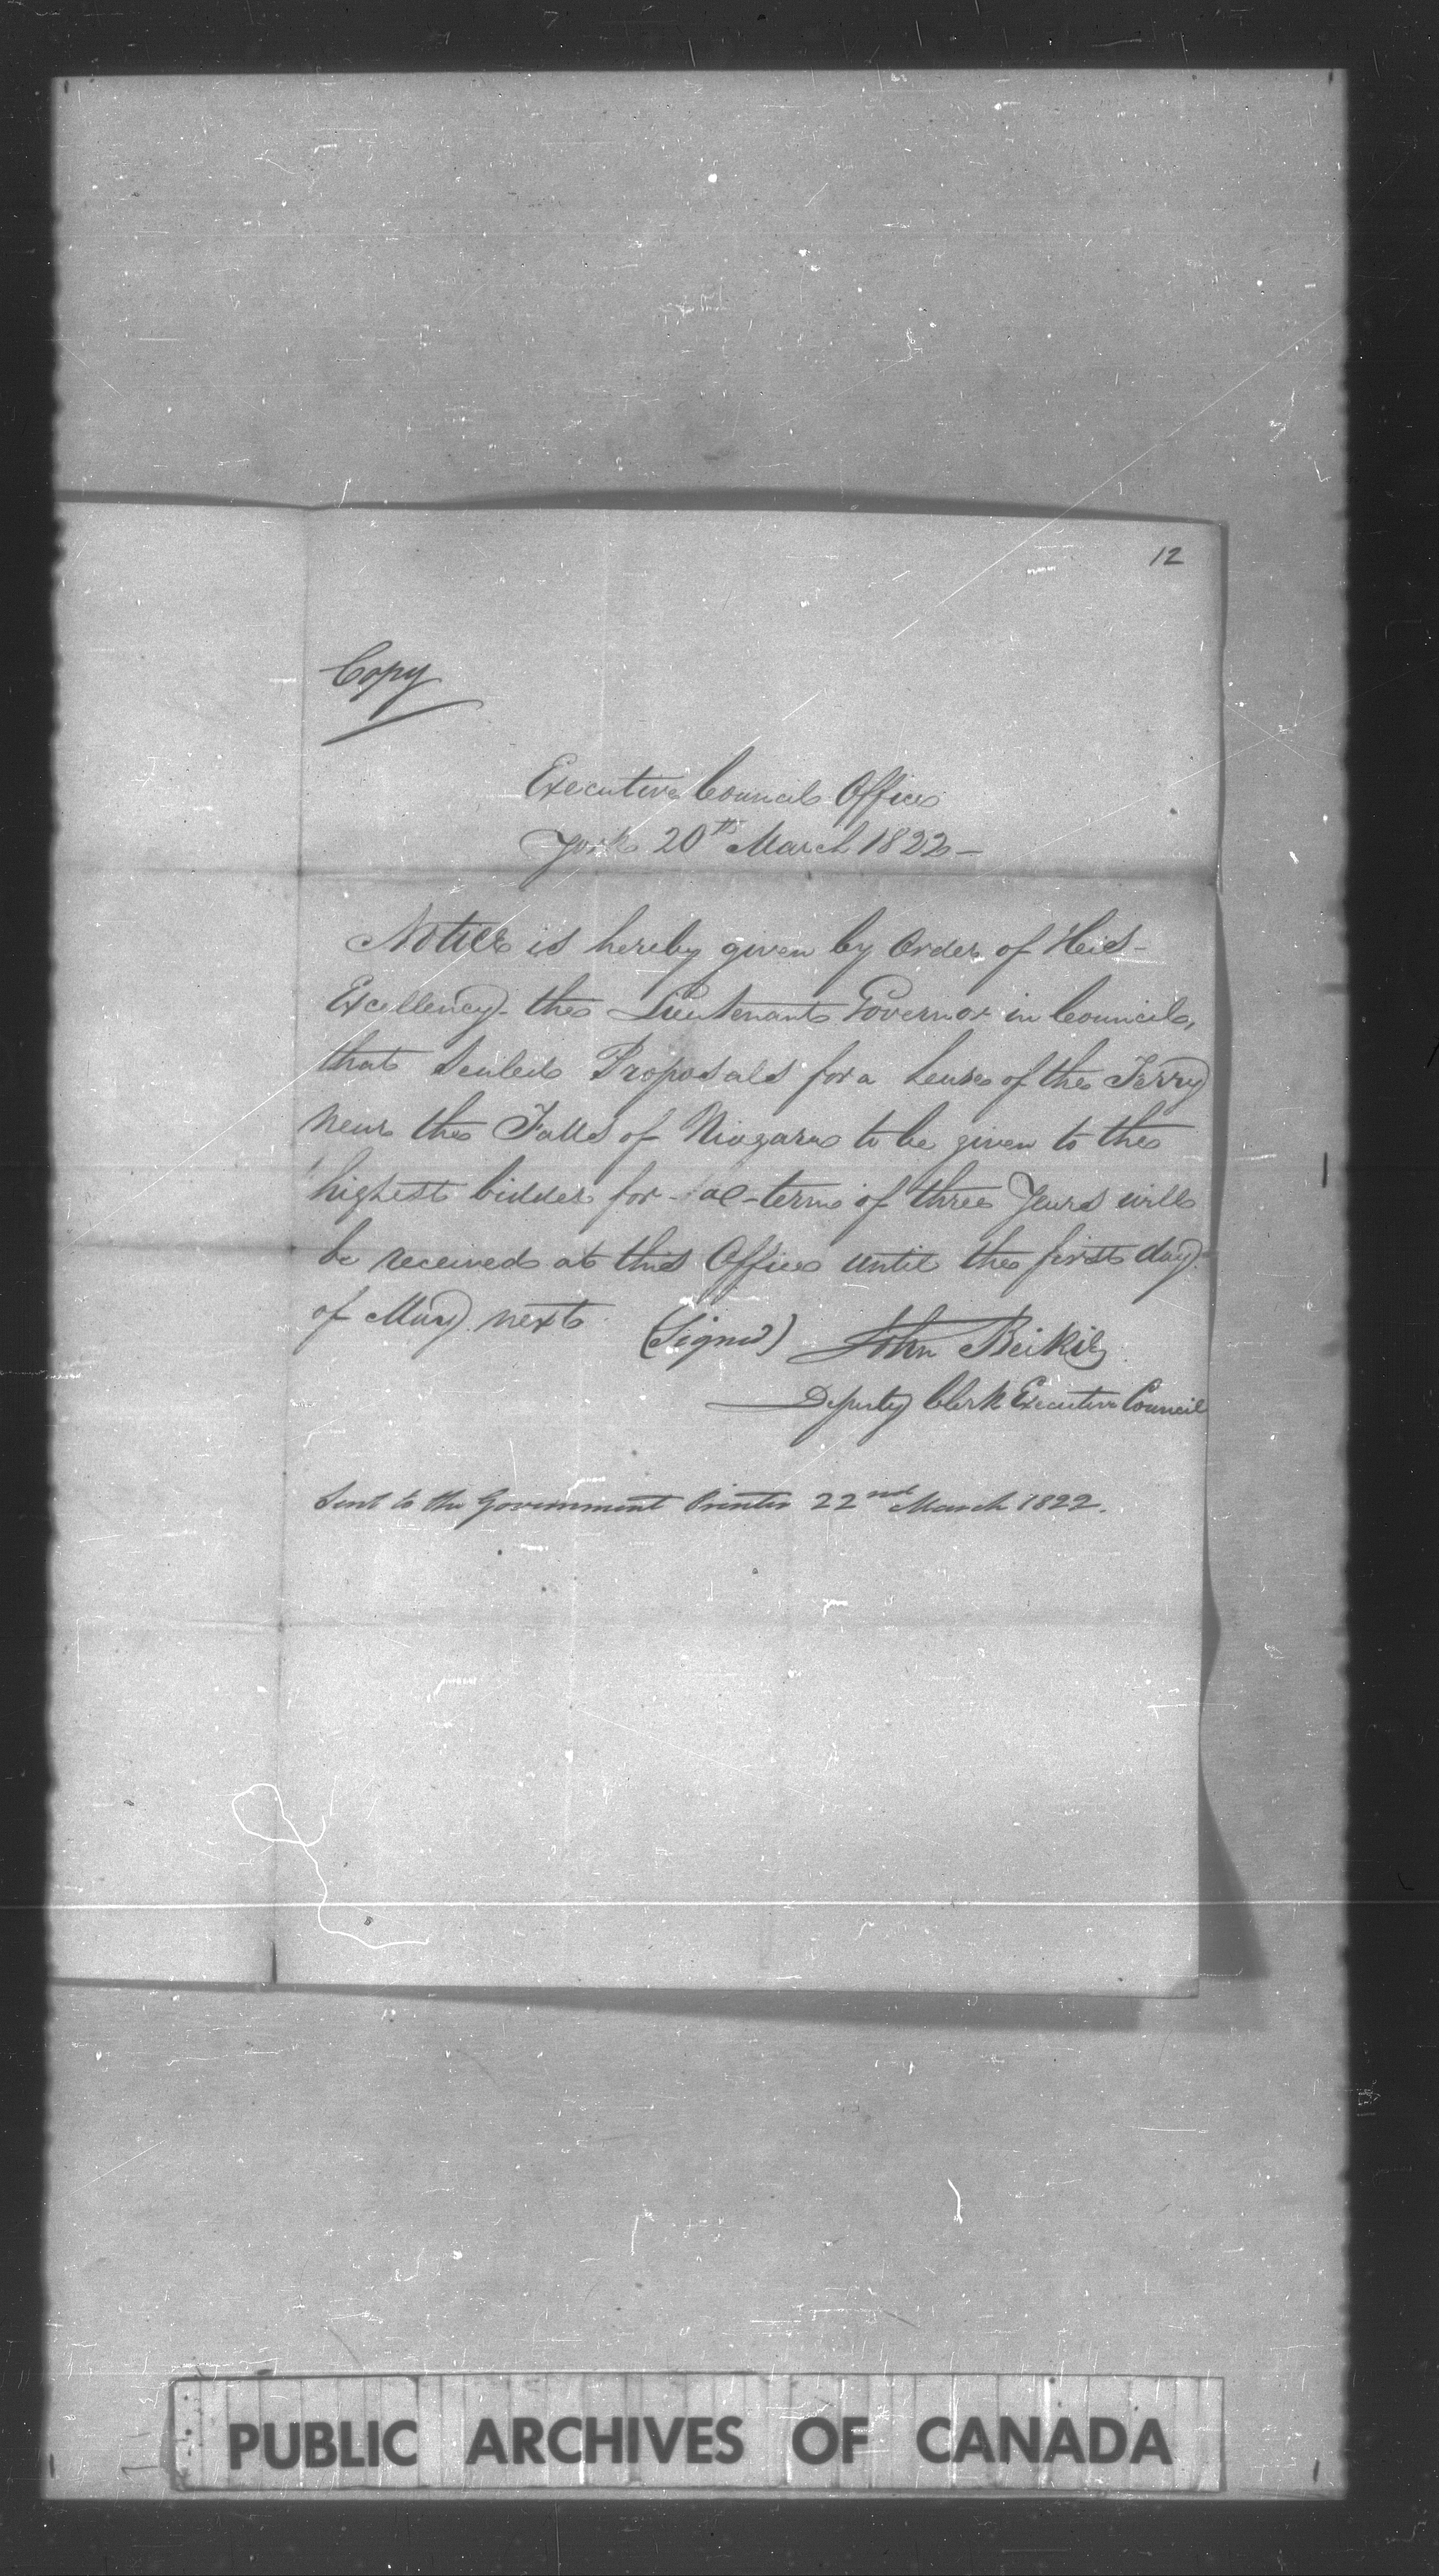 12
Copy
Executive Council Office
York 20th March 1822 —
Notice is hereby given by Order of His
Excellency the Lieutenant Governor in Council,
that Sealed Proposals for a Lease of the Ferry
near the Falls of Niagara to be given to the
highest bidder for a term of three Years will
be received at this Office until the first day
of May next
(Signed) John Beikie
Deputy Clerk Executive Council
Sent to the Government Printer 22nd March 1822.
PUBLIC ARCHIVES OF CANADA